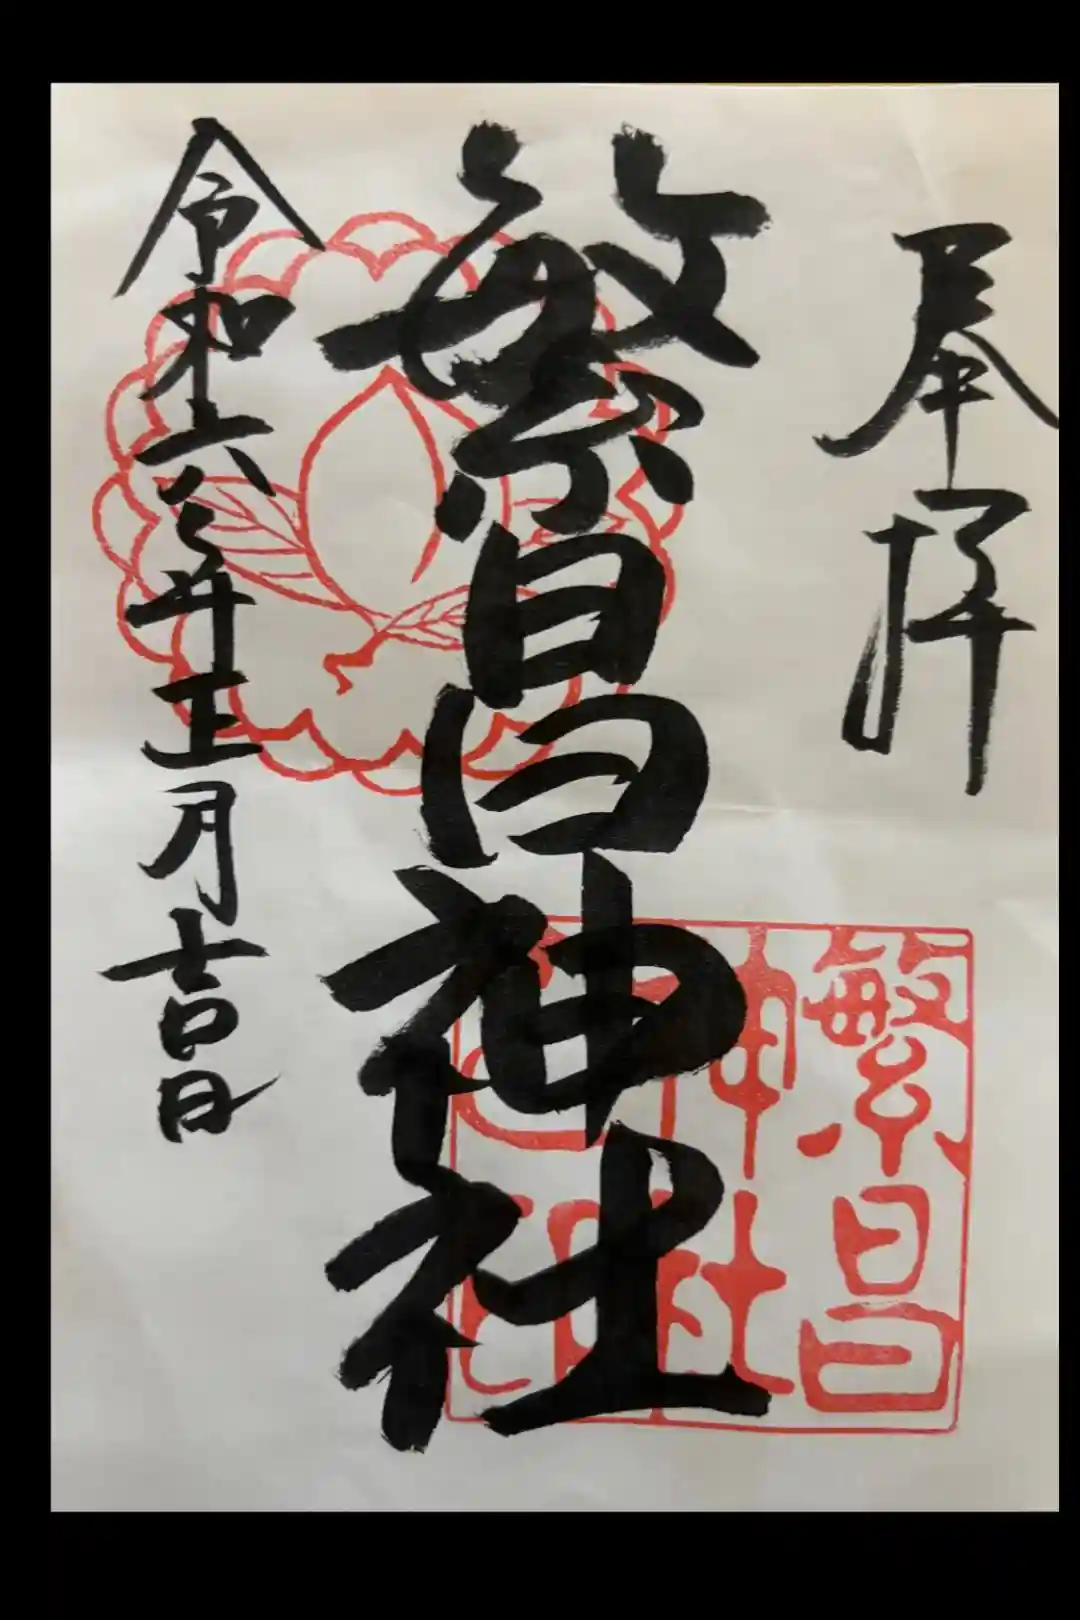 奉拝
繁昌神社
令和六年正月吉日
繁昌
神社
之印